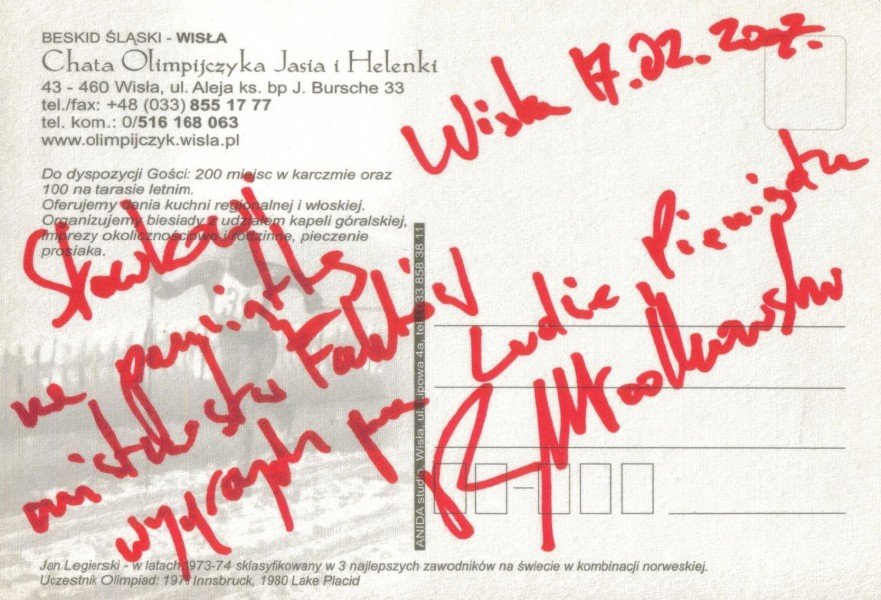 BESKID ŚLĄSKI - WISŁA
Chata Olimpijczyka Jasia i Helenki
43 - 460 Wisła, ul. Aleja ks. bp J. Bursche 33
tel./fax: +48 (033) 855 17 77
tel. kom.: 0/516 168 063
www.olimpijczyk.wisla.pl
Do dyspozycji Gości: 200 miejsc w karczmie oraz
100 na tarasie letnim.
Oferujemy dania kuchni regionalnej i włoskiej.
Organizujemy biesiady z udziałem kapeli góralskiej,
imprezy okolicznościowe i rodzinne, pieczenie
prosiaka.
Wisła 17.02.2007.
na pamiątkę
mistrzostw Faktów
wygranych przez
Ludzie Pieniądza
ANIDA studio, Wisła, ul. Lipowa 4a, tel. 033 858 38 11
Jan Legierski - w latach 1973-74 sklasyfikowany w 3 najlepszych zawodników na świecie w kombinacji norweskiej.
Uczestnik Olimpiad: 197 Innsbruck, 1980 Lake Placid